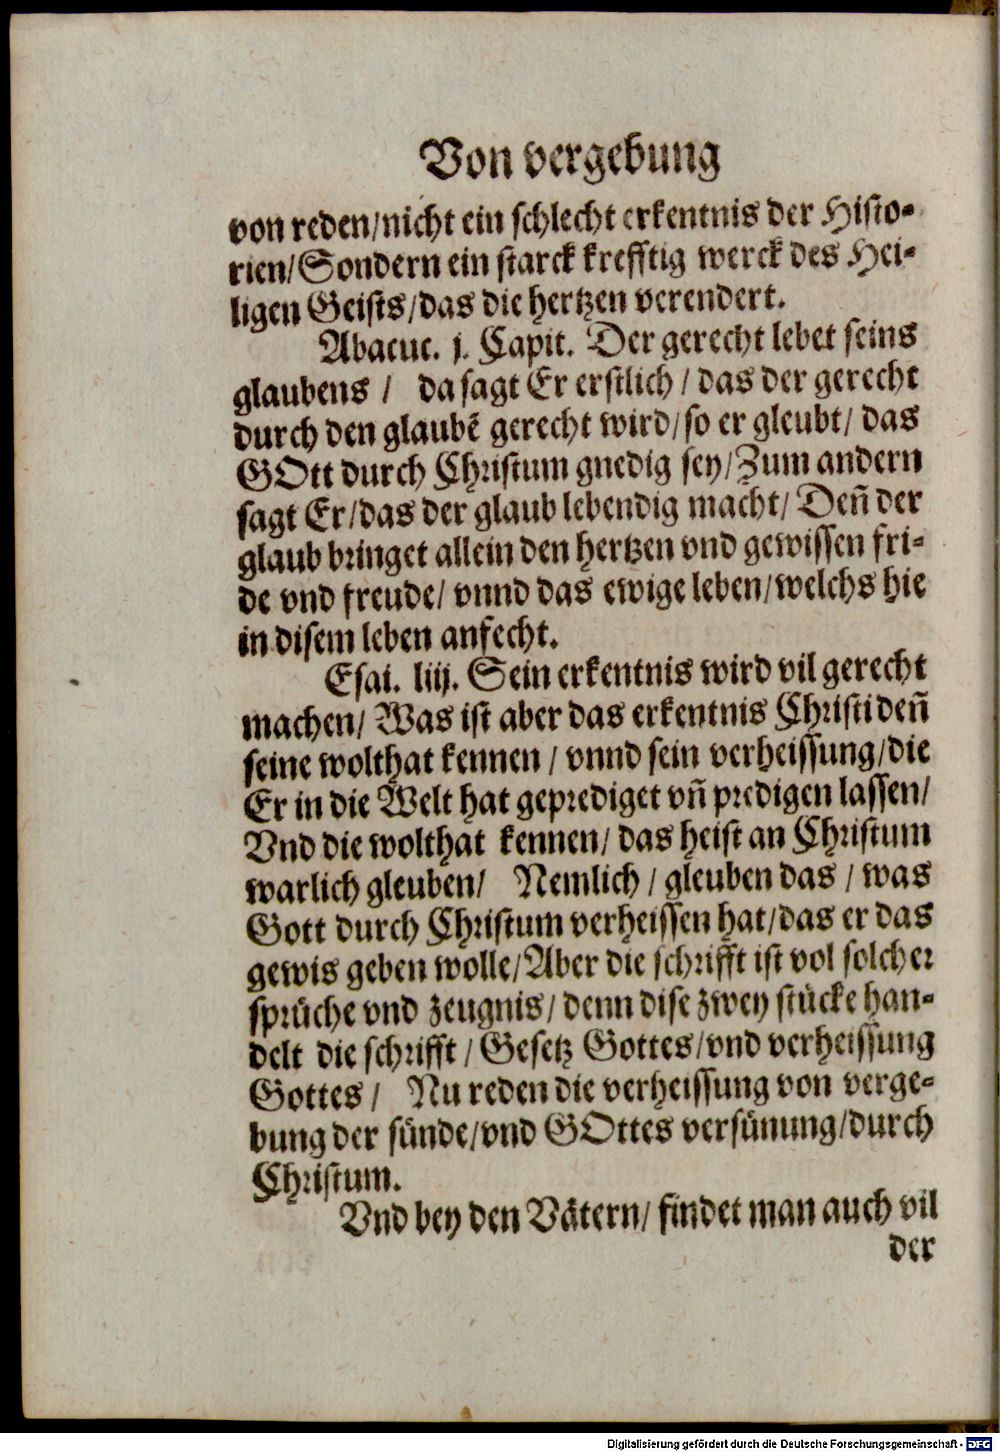 Von vergebung
von reden/nicht ein schlecht erkentnis der Histo-
rien/Sondern ein starck krefftig werck des Hei-
ligen Geists/das die hertzen verendert.
Abacuc. j. Capit. Der gerecht lebet seins
glaubens / da sagt Er erstlich / das der gerecht
durch den glaubē gerecht wird/so er gleubt/ das
GOtt durch Christum gnedig sey/Zum andern
sagt Er/das der glaub lebendig macht/ Den̄ der
glaub bringet allein den hertzen vnd gewissen fri-
de vnd freude/ vnnd das ewige leben/welchs hie
in disem leben anfecht.
Esai. liij. Sein erkentnis wird vil gerecht
machen/ Was ist aber das erkentnis Christi den̄
seine wolthat kennen / vnnd sein verheissung/die
Er in die Welt hat geprediget vn̄ predigen lassen/
Vnd die wolthat kennen/ das heist an Christum
warlich gleuben/ Nemlich / gleuben das / was
Gott durch Christum verheissen hat/das er das
gewis geben wolle/Aber die schrifft ist vol solcher
sprüche vnd zeugnis/ denn dise zwey stücke han-
delt die schrifft / Gesetz Gottes/vnd verheissung
Gottes / Nu reden die verheissung von verge-
bung der sünde/vnd GOttes versünung/durch
Christum.
Vnd bey den Vätern/ findet man auch vil
der
Digitalisierung gefördert durch die Deutsche Forschungsgemeinschaft - DFG